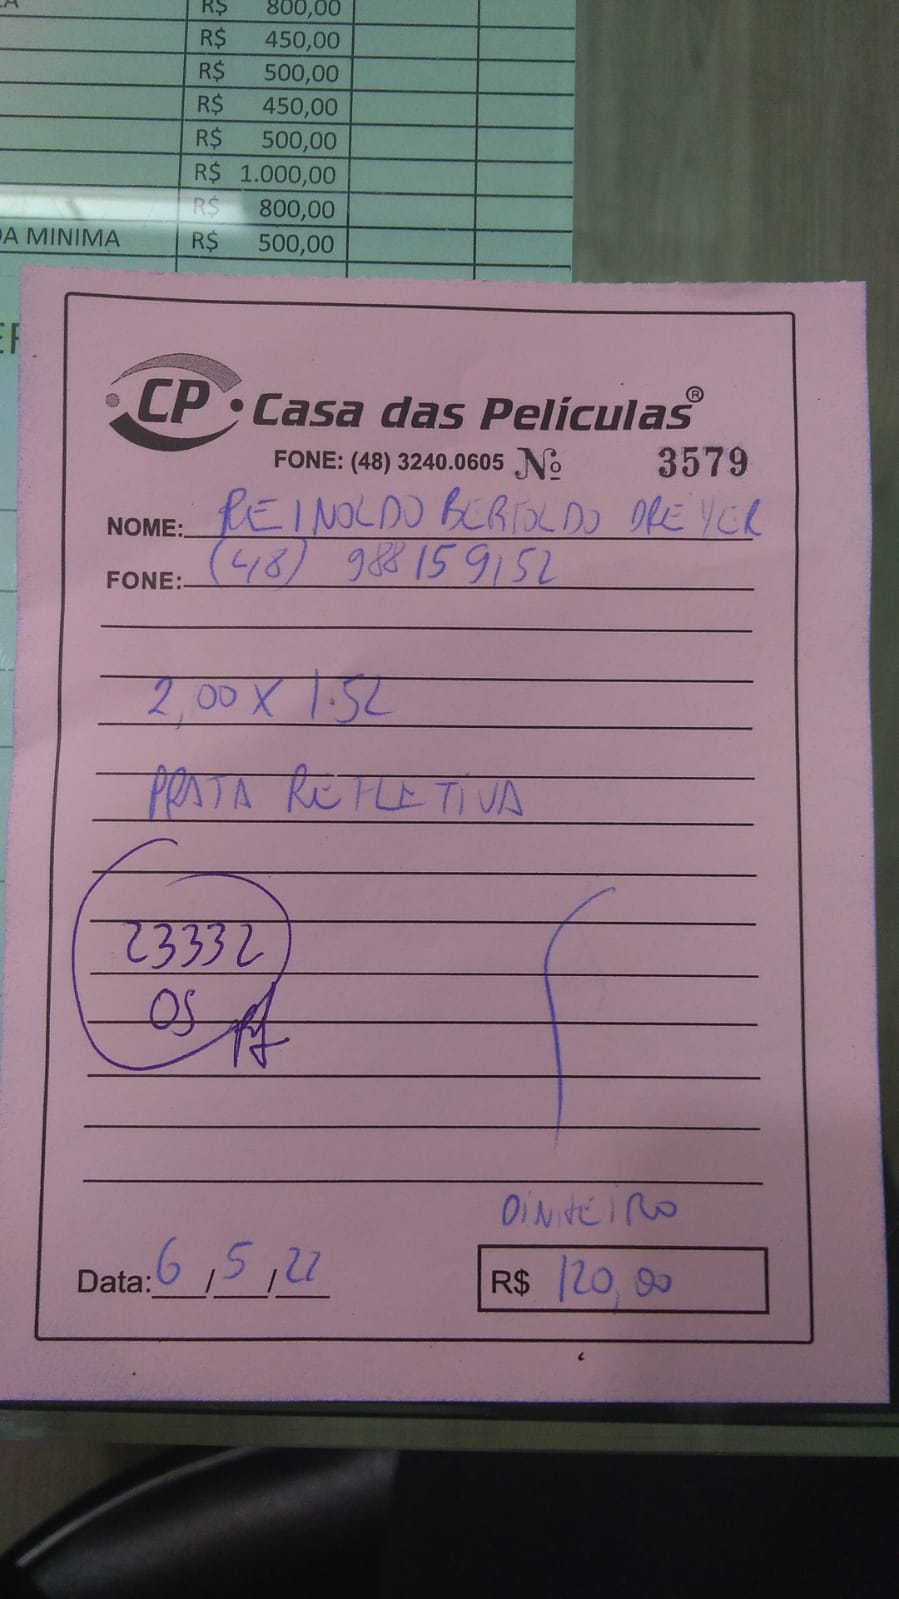 R$ 800,00
R$ 450,00
R$ 500,00
R$ 450,00
R$ 500,00
R$ 1.000,00
R$ 800,00
DA MINIMA R$ 500,00
CP Casa das Películas®
FONE: (48) 3240.0605 Nº 3579
NOME: REINOLDO BERTOLDO DREYER
FONE: (48) 988159152
2,00 X 1.52
PRATA REFLETIVA
23332
OS
DINHEIRO
Data: 6/5/22 R$ 120,00